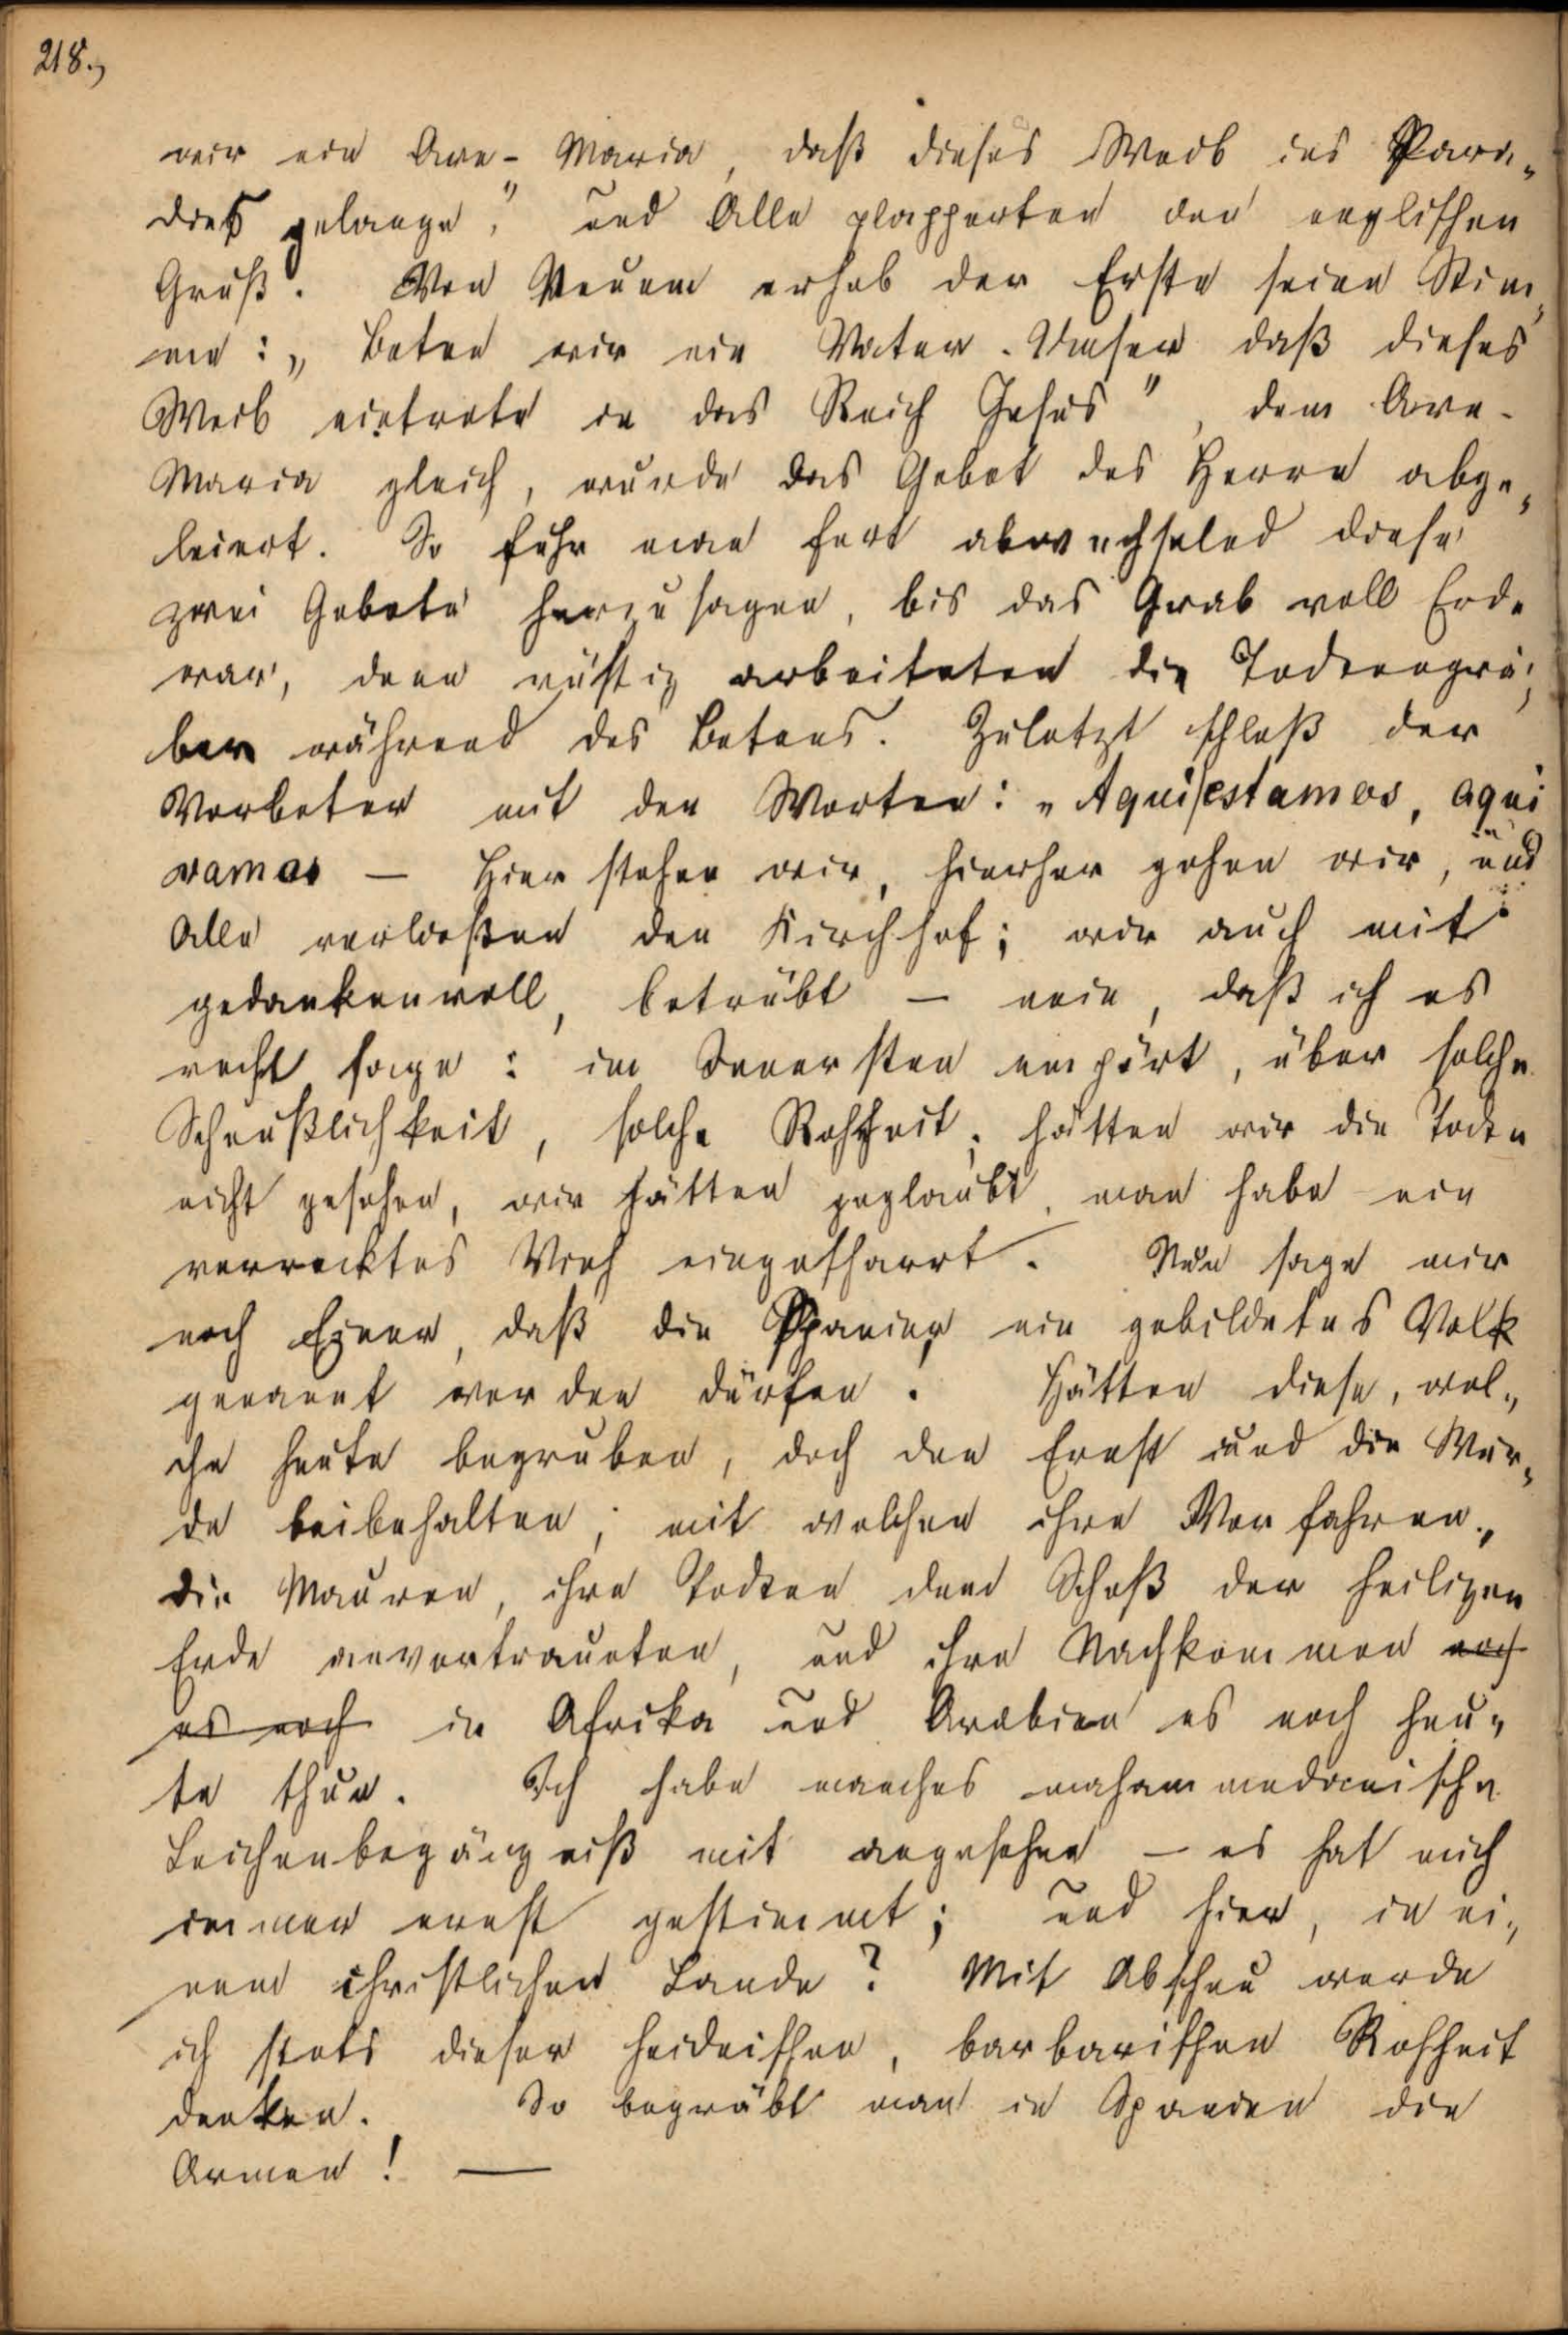 218.,
wir ein Ave-Maria, daß dieses Weib ins Para„
dies gelange," und Alle plapperten den englischen
Gruß. Von Neuem erhob der Erste seine Stim„
me: „Beten wir ein Vater-Unser daß dieses
Weib eintrete in das Reich Jesus", dem Ave-
Maria gleich, wurde das Gebet des Herrn abge„
leiert. So fuhr man fort abwechselnd diese
zwei Gebete herzusagen, bis das Grab voll Erde
war, denn rüstig arbeiteten die Todtengrä„
ber während des Betens. Zuletzt schloß der
Vorbeter mit den Worten: „Aqui estamos, aqui
vamos — Hier stehen wir, hierher gehen wir, und
Alle verließen den Kirchhof; wir auch mit
gedankenvoll, betrübt — nein, daß ich es
recht sage: im Innersten empört, über solche
Scheußlichkeit, solche Rohheit; hätten wir die Todte
nicht gesehen, wir hätten geglaubt, man habe ein
verrecktes Vieh eingescharrt. Nun sage mir
noch Einer, daß die Spanier ein gebildetes Volk
genannt werden dürfen. Hätten diese, wel„
che heute begruben, doch den Ernst und die Wür„
de beibehalten; mit welchen ihre Vorfahren,
die Mauren, ihre Todten dem Schoß der heiligen
Erde anvertrauten, und ihre Nachkommen noch
es noch in Afrika und Arabien es noch heu„
te thun. Ich habe manches mahammedanische
Leichenbegängniß mit angesehen — es hat mich
immer ernst gestimmt; und hier, in ei„
nem christlichen Lande? Mit Abscheu werde
ich stets dieser heidnischen, barbarischen Rohheit
denken. So begräbt man in Spanien die
Armen! —